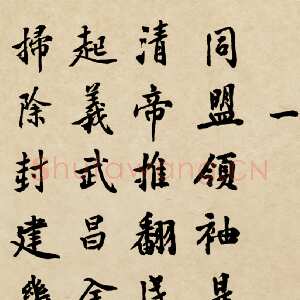 一
同盟領袖是
清帝推翻
起義武昌全
掃除封建幾
Shufawang.CN